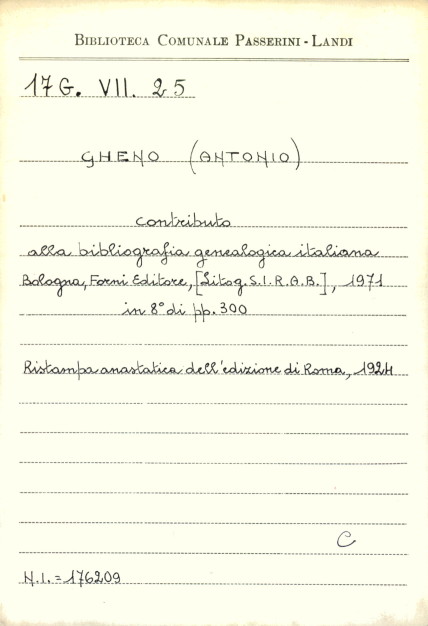 BIBLIOTECA COMUNALE PASSERINI - LANDI
17 G. VII. 25
GHENO (ANTONIO)
Contributo
alla bibliografia genealogica italiana
Bologna, Forni Editore, [Litog. S.I.R.A.B.], 1971
in 8° di pp. 300
Ristampa anastatica dell'edizione di Roma, 1924
C
N.I. = 176209